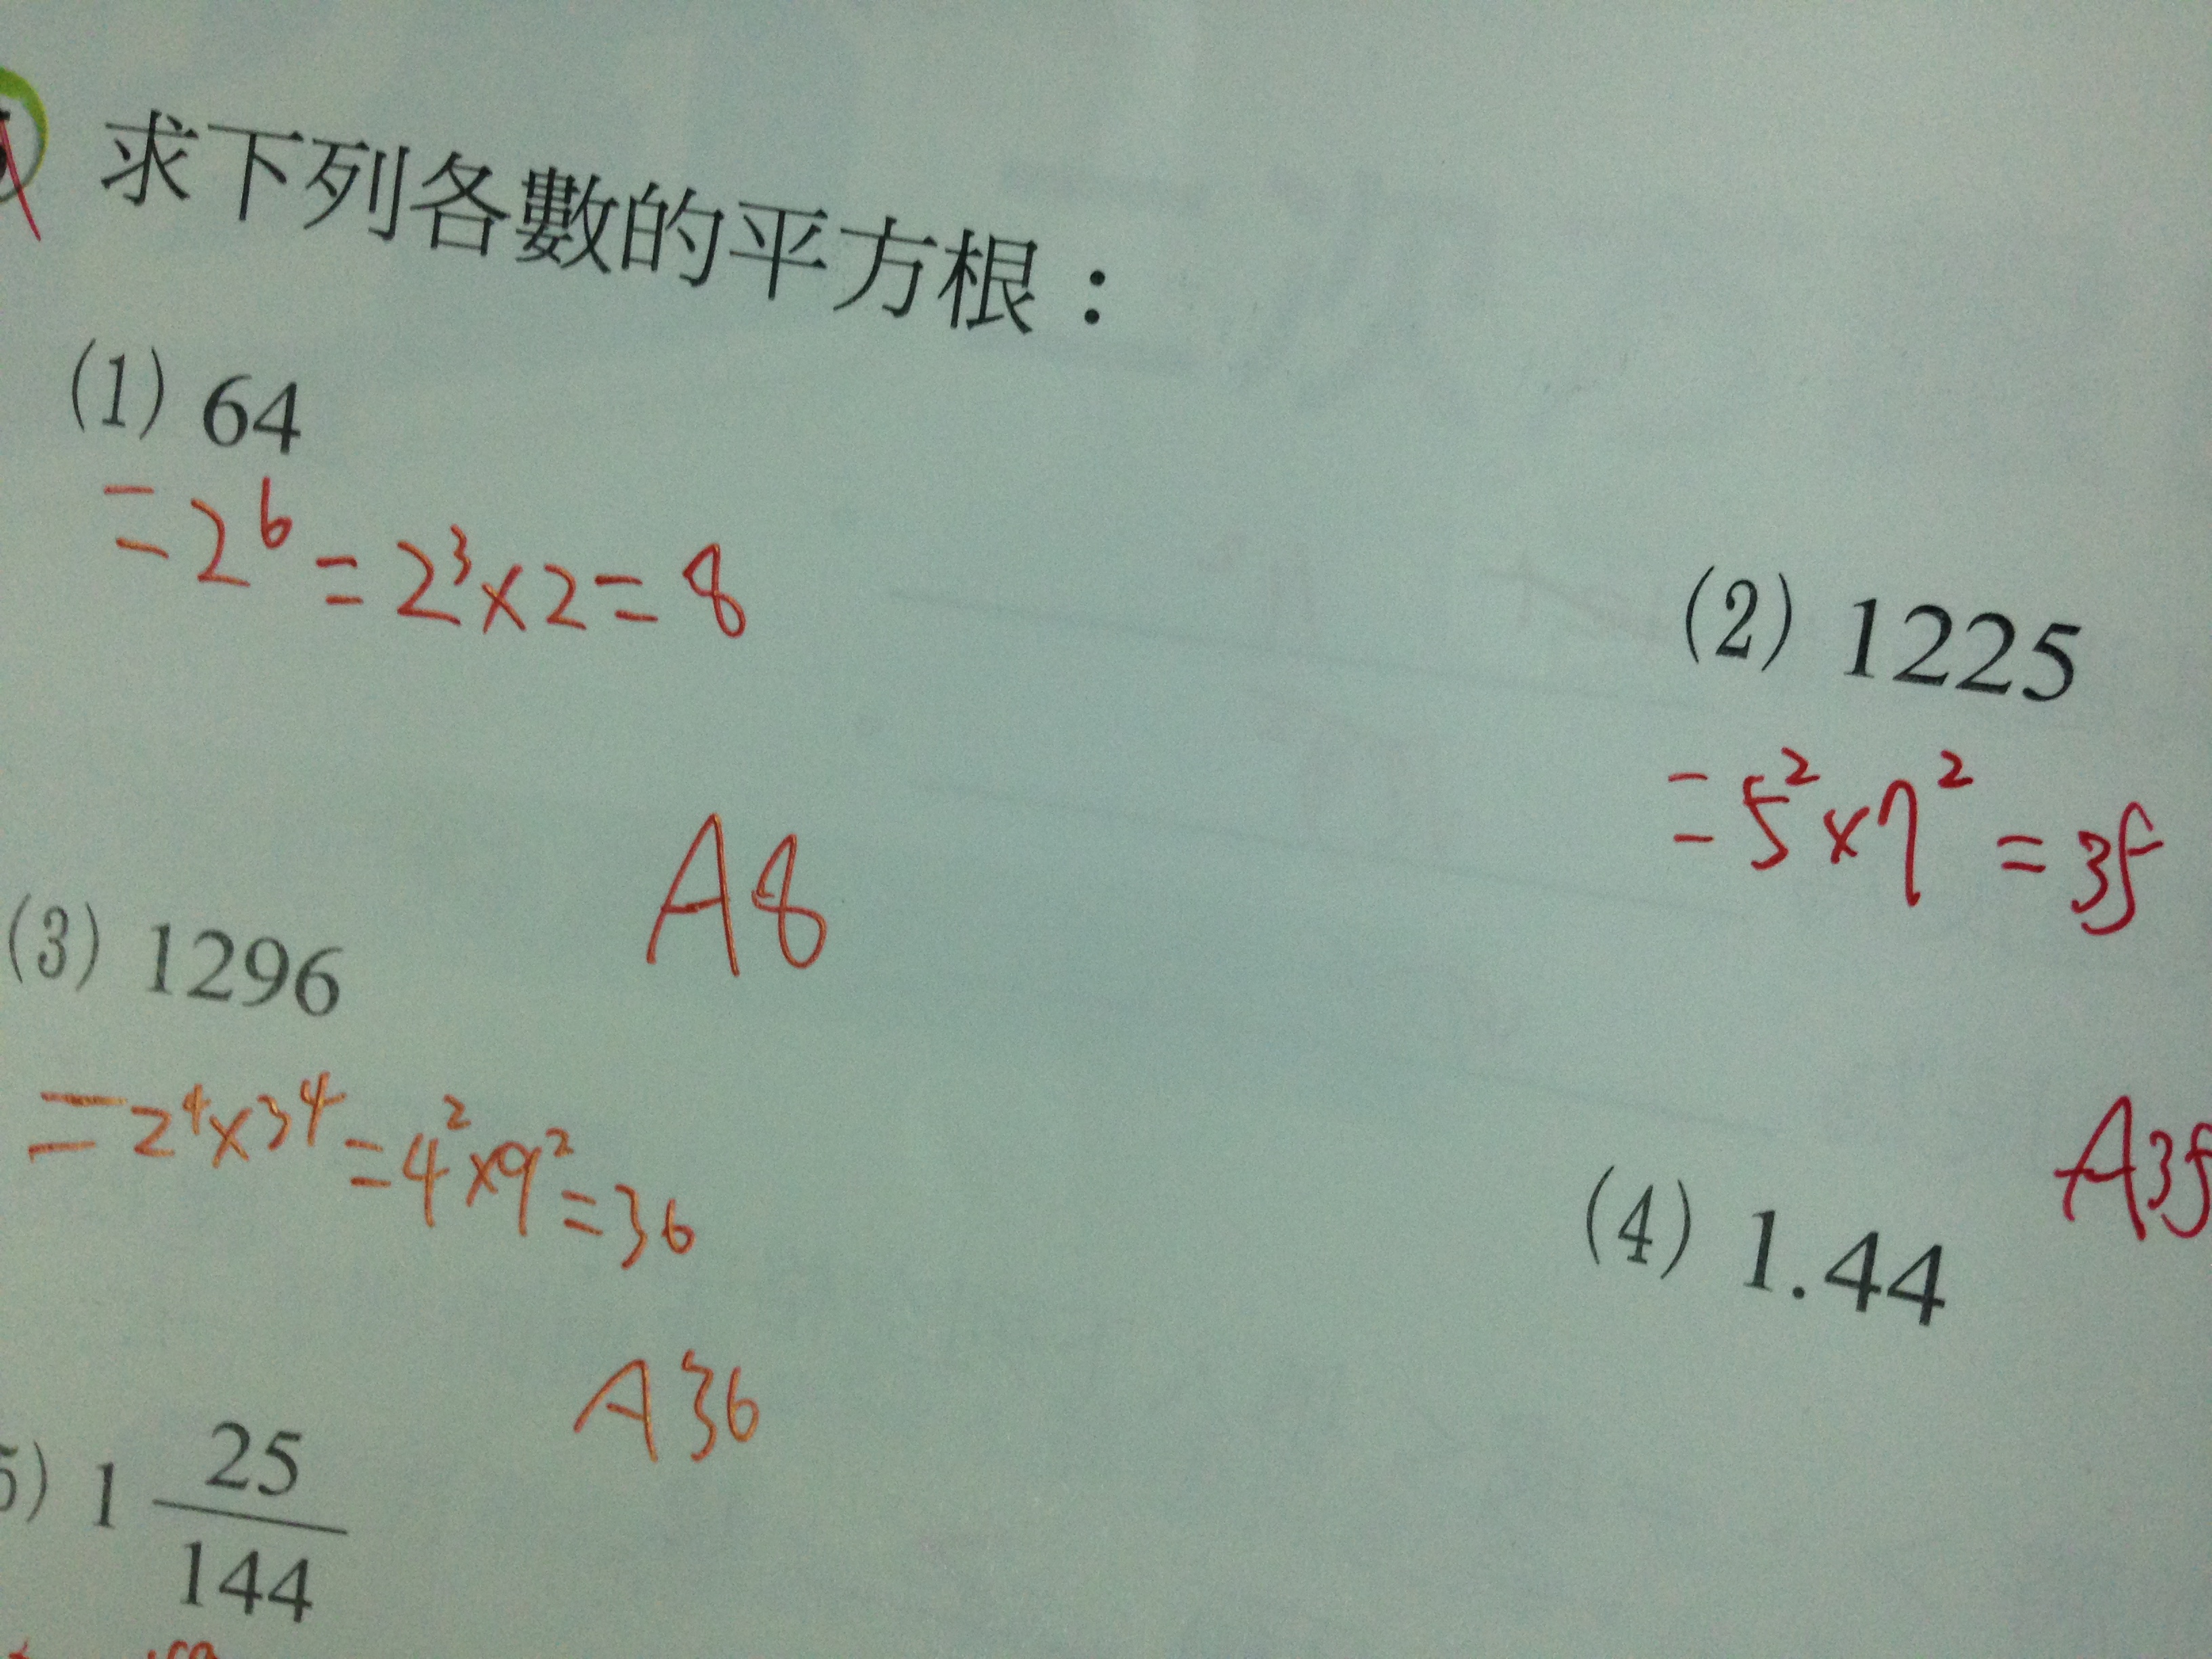 求下列各數的平方根：
(1) 64
=2⁶=2³×2=8
A8
(2) 1225
=5²×7²=35
A35
(3) 1296
=2⁴×3⁴=4²×9²=36
A36
(4) 1.44
5) 1 25/144